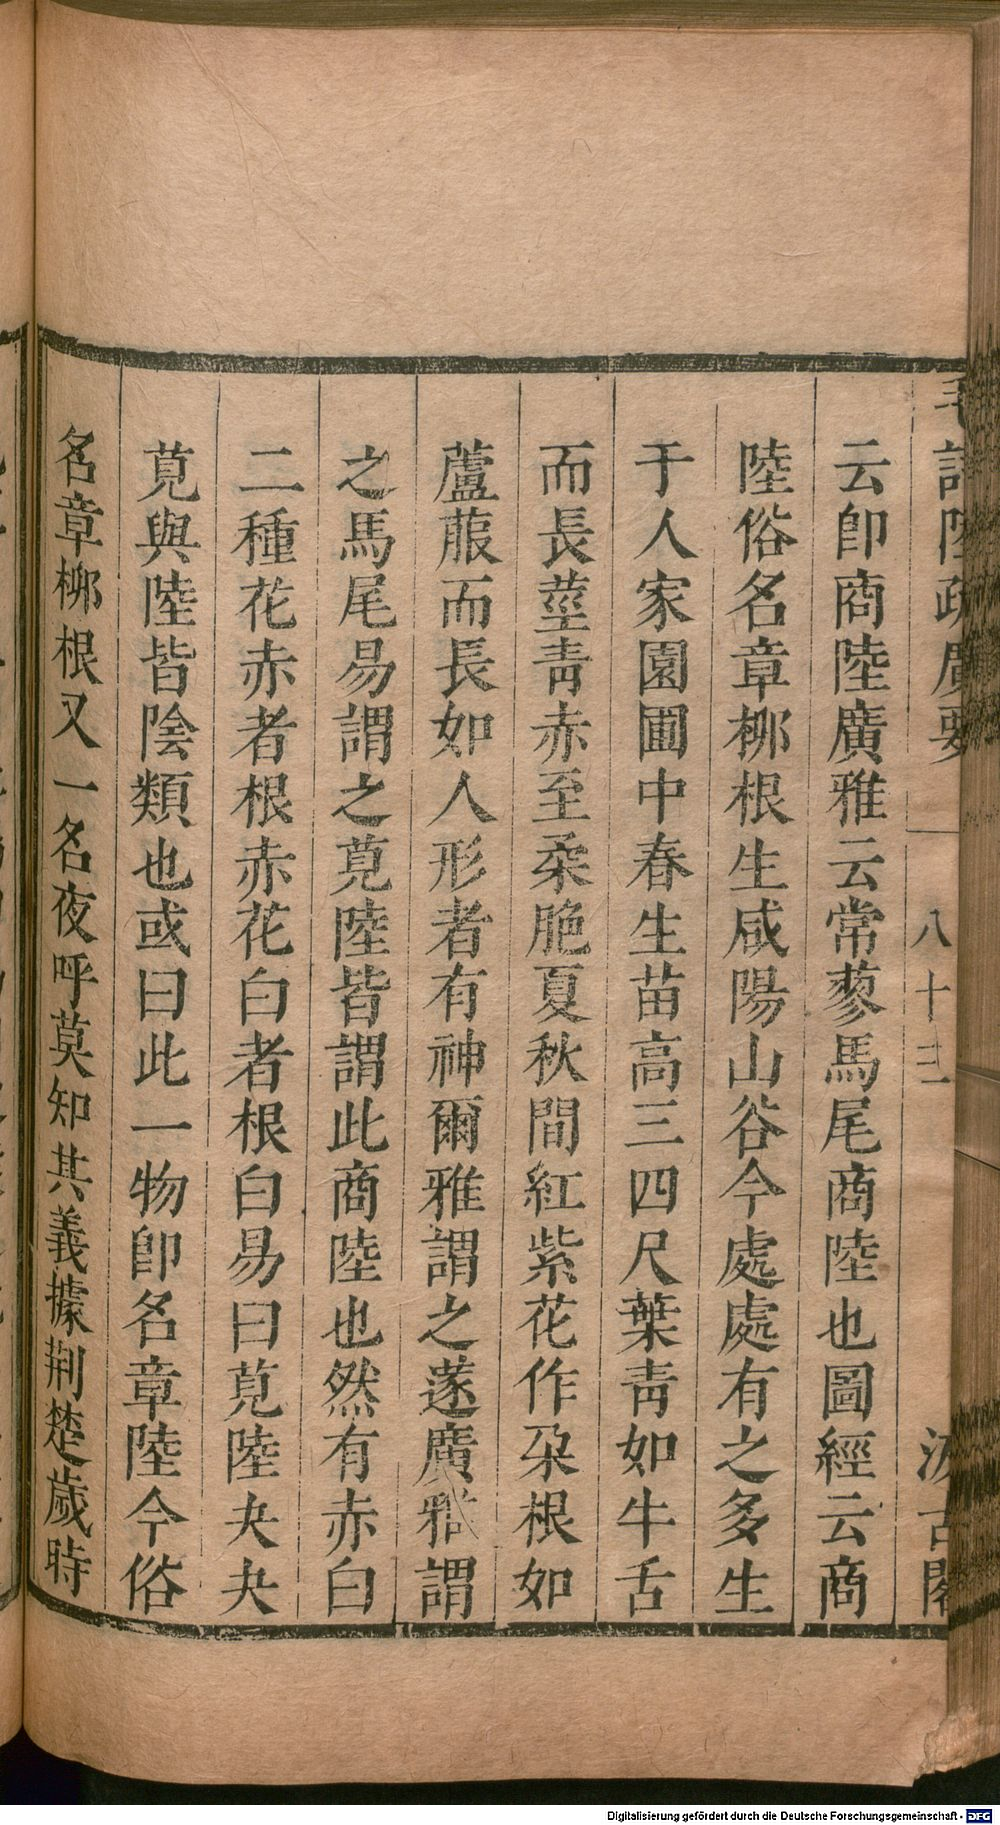 毛詩陸疏廣要 八十三 汲古閣
云卽商陸廣雅云常蓼馬尾商陸也圖經云商
陸俗名章柳根生咸陽山谷今處處有之多生
于人家園圃中春生苗高三四尺葉靑如牛舌
而長莖靑赤至柔脆夏秋間紅紫花作朶根如
蘆菔而長如人形者有神爾雅謂之蓫廣雅謂
之馬尾易謂之莧陸皆謂此商陸也然有赤白
二種花赤者根赤花白者根白易曰莧陸夬夬
莧與陸皆陰類也或曰此一物卽名章陸今俗
名章柳根又一名夜呼莫知其義據荆楚歲時
Digitalisierung gefördert durch die Deutsche Forschungsgemeinschaft - DFG